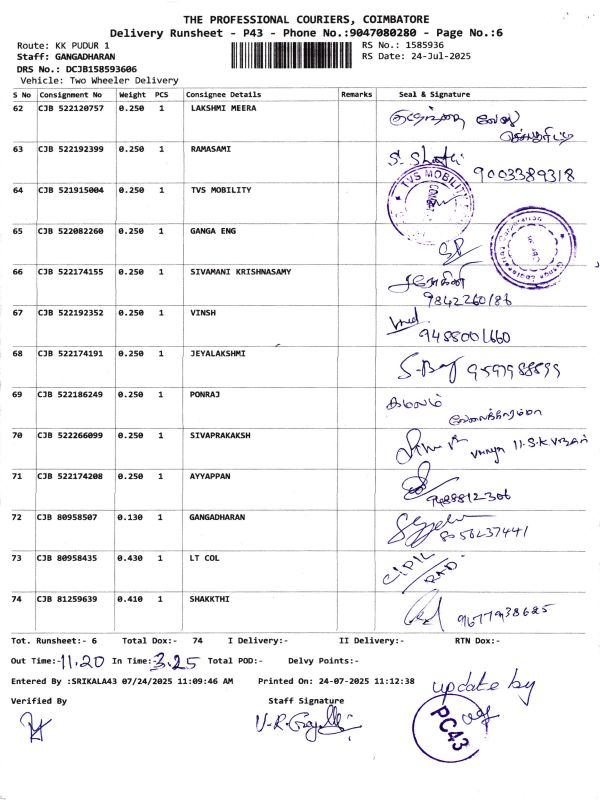 THE PROFESSIONAL COURIERS, COIMBATORE
Delivery Runsheet - P43 - Phone No.:9047080280 - Page No.:6
Route: KK PUDUR 1 RS No.: 1585936
Staff: GANGADHARAN RS Date: 24-Jul-2025
DRS No.: DCJB158593606
Vehicle: Two Wheeler Delivery
S No Consignment No Weight PCS Consignee Details Remarks Seal & Signature
62 CJB 522120757 0.250 1 LAKSHMI MEERA
63 CJB 522192399 0.250 1 RAMASAMI
9003389318
64 CJB 521915004 0.250 1 TVS MOBILITY TVS MOBILITY
65 CJB 522082260 0.250 1 GANGA ENG
66 CJB 522174155 0.250 1 SIVAMANI KRISHNASAMY சரோஜினி
9842260186
67 CJB 522192352 0.250 1 VINSH
9488001660
68 CJB 522174191 0.250 1 JEYALAKSHMI
69 CJB 522186249 0.250 1 PONRAJ கமலம்
வேலைக்காரம்மா
70 CJB 522266099 0.250 1 SIVAPRAKAKSH
71 CJB 522174208 0.250 1 AYYAPPAN
9489812306
72 CJB 80958507 0.130 1 GANGADHARAN
8056237441
73 CJB 80958435 0.430 1 LT COL
74 CJB 81259639 0.410 1 SHAKKTHI 9677938685
Tot. Runsheet:- 6 Total Dox:- 74 I Delivery:- II Delivery:- RTN Dox:-
Out Time:- 11.20 In Time:- 3.25 Total POD:- Delvy Points:-
Entered By :SRIKALA43 07/24/2025 11:09:46 AM Printed On: 24-07-2025 11:12:38
update by
Verified By Staff Signature
PC43